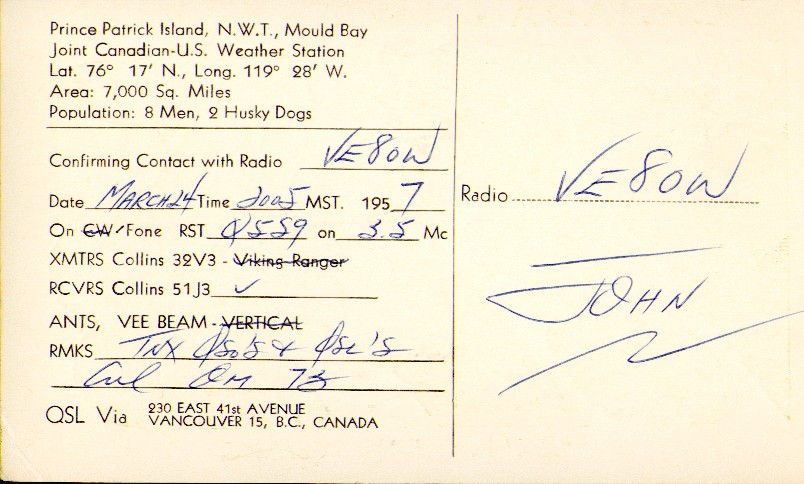 Prince Patrick Island, N.W.T., Mould Bay
Joint Canadian-U.S. Weather Station
Lat. 76° 17' N., Long. 119° 28' W.
Area: 7,000 Sq. Miles
Population: 8 Men, 2 Husky Dogs
Confirming Contact with Radio VE8OW
Date MARCH 24 Time 2005 MST. 1957
On CW/Fone RST Q559 on 3.5 Mc
XMTRS Collins 32V3 - Viking Ranger
RCVRS Collins 51J3 ✓
ANTS, VEE BEAM - VERTICAL
RMKS TNX QSO'S & QSL'S
CUL OM 73
QSL Via 230 EAST 41st AVENUE
VANCOUVER 15, B.C., CANADA
Radio VE8OW
JOHN